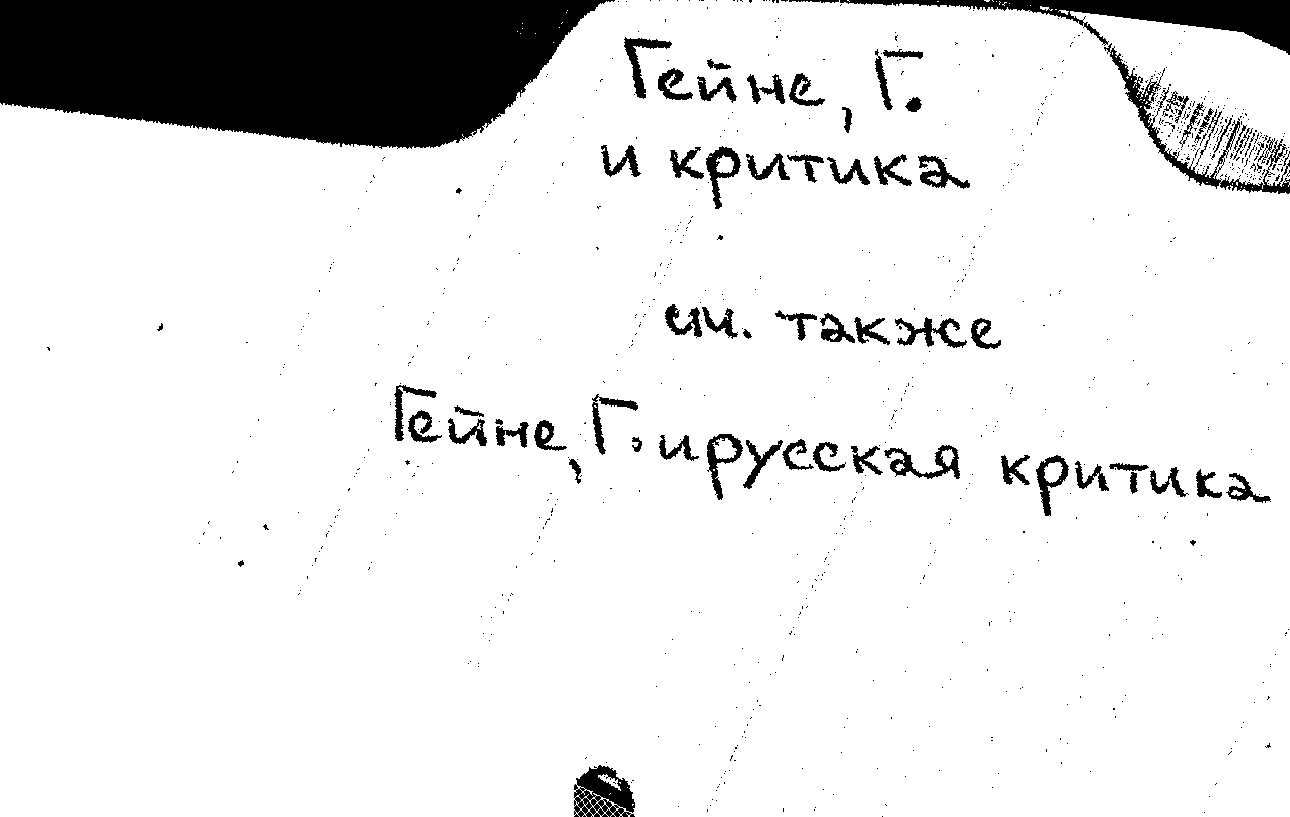 Гейне, Г.
и критика
см. также
Гейне, Г. и русская критика